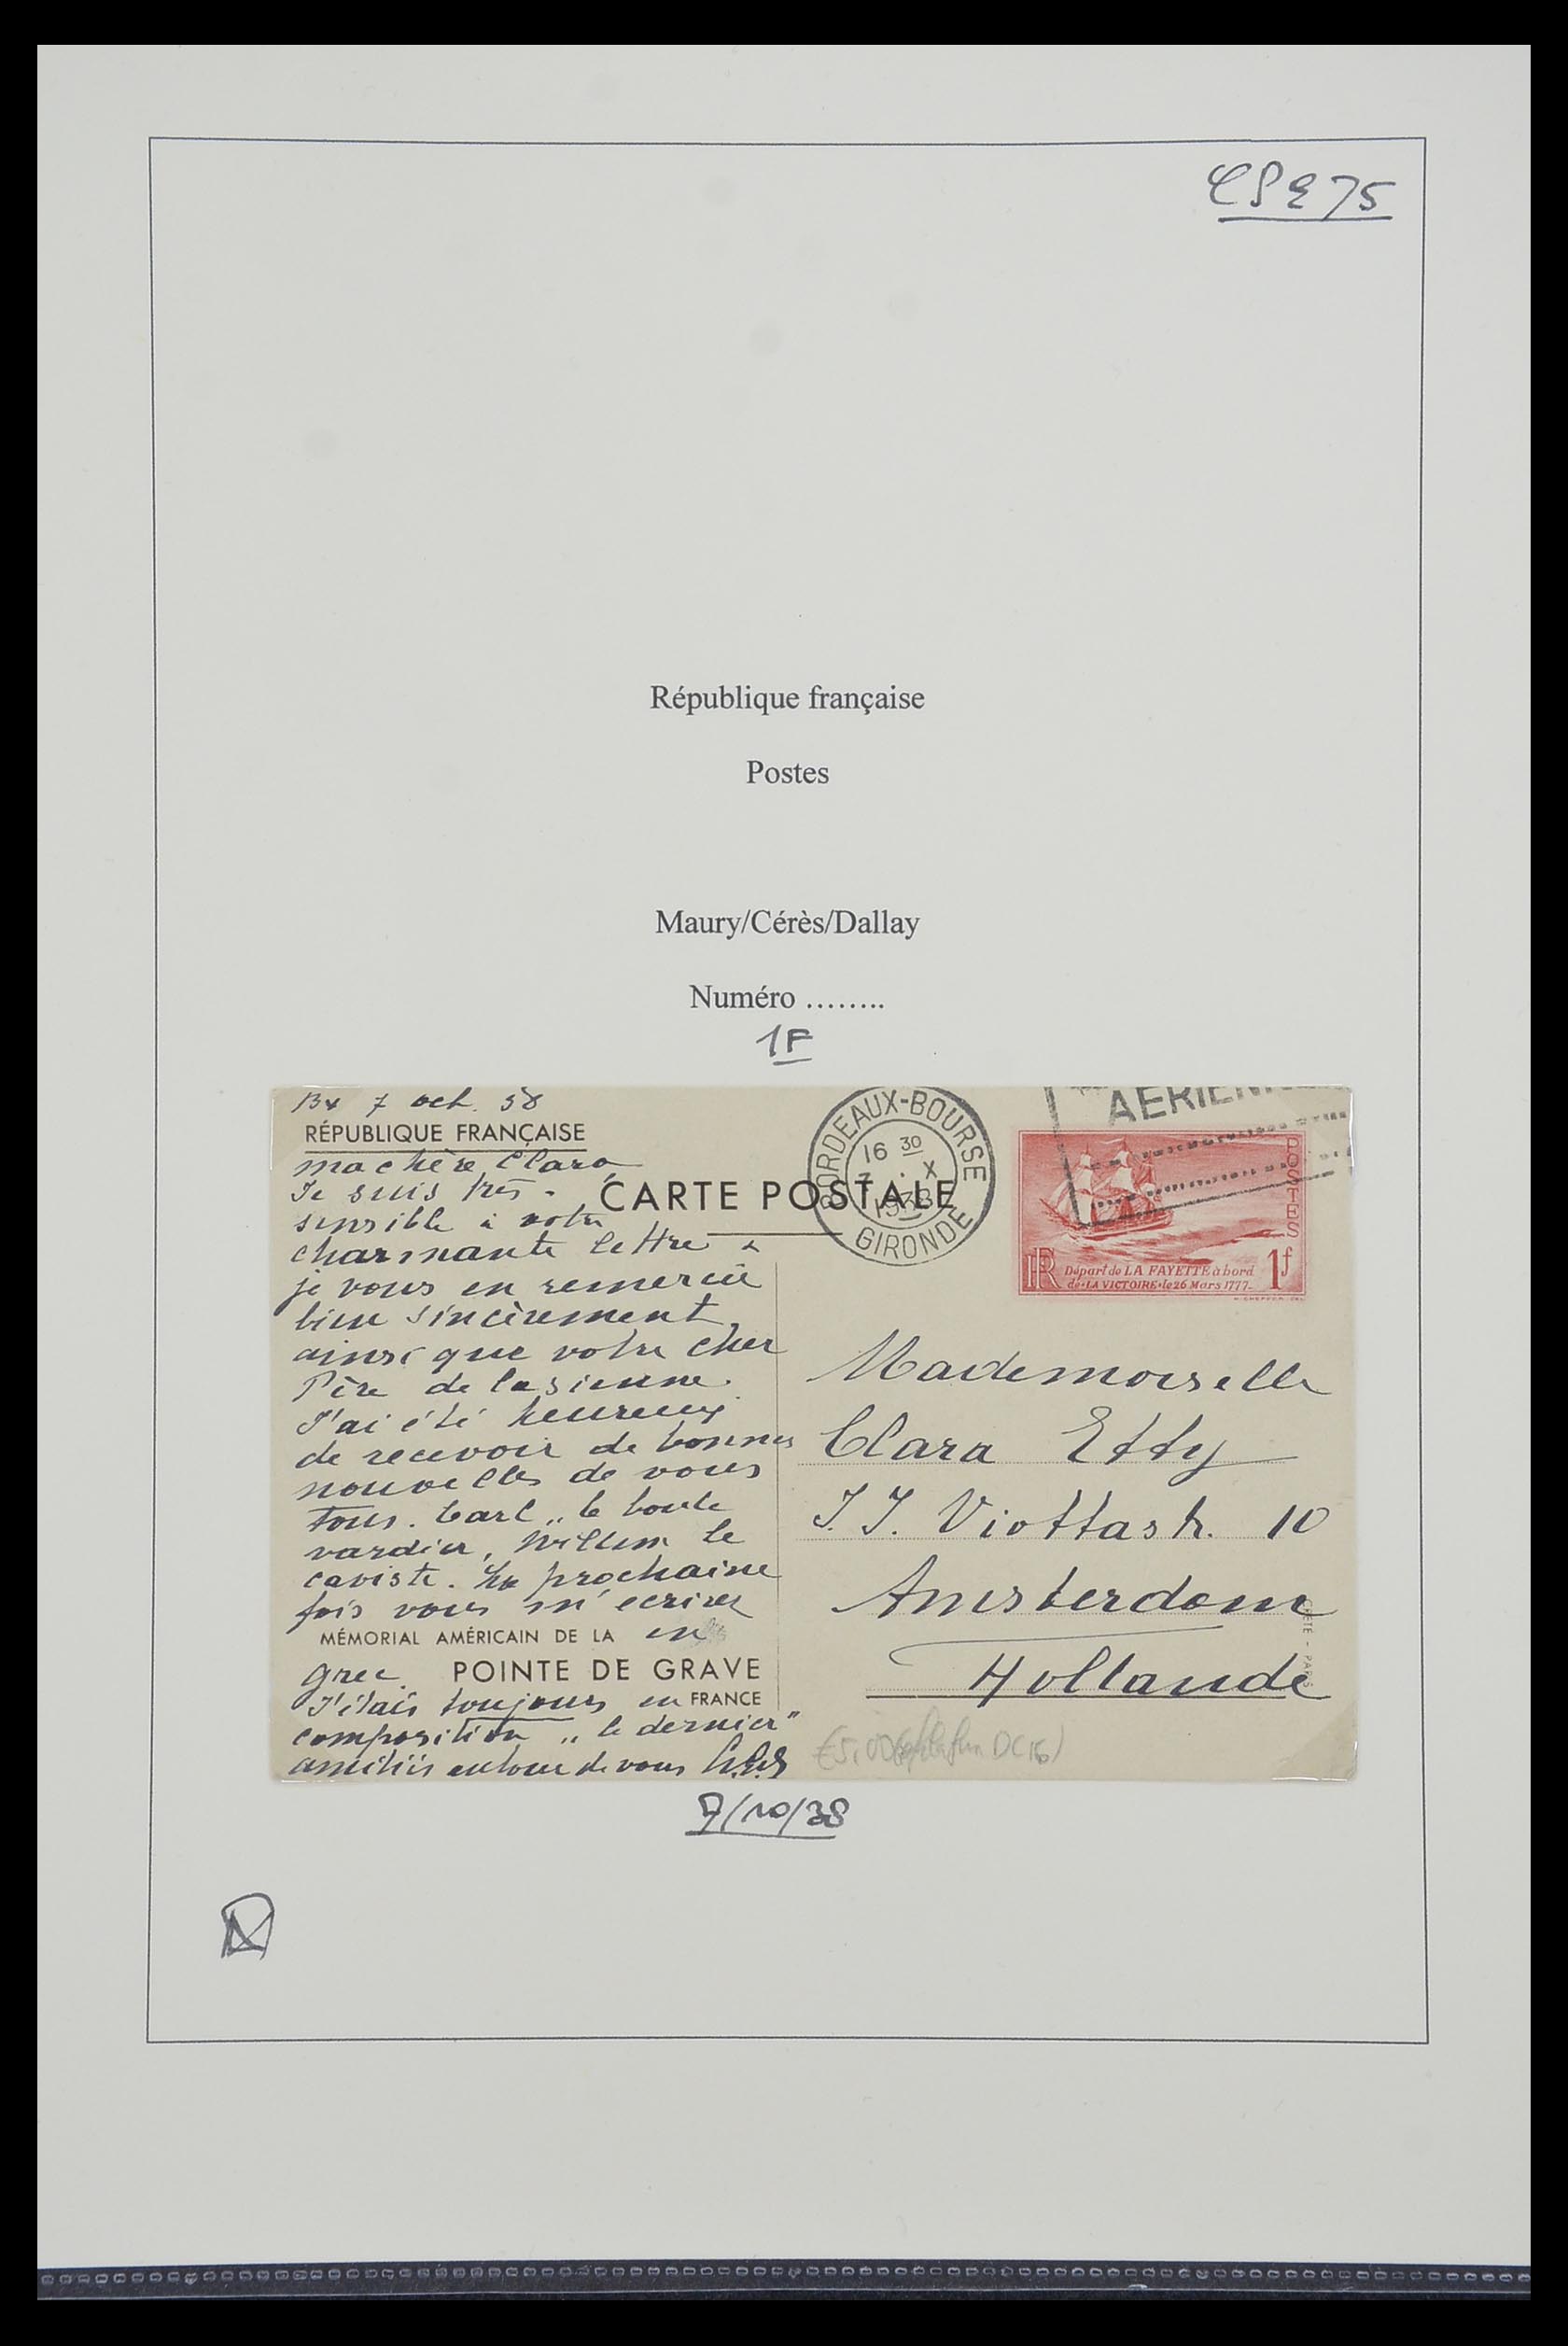 CP E 75
République française
Postes
Maury/Cérès/Dallay
Numéro ........
1F
Bx 7 oct. 38
RÉPUBLIQUE FRANÇAISE
ma chère Clara
Je suis très
sensible à votre
charmante lettre &
je vous en remercie
bien sincèrement
ainsi que votre cher
Père de la sienne.
J'ai été heureux
de recevoir de bonnes
nouvelles de vous
tous. Carl „ le boule
vardier, Willem le
caviste. La prochaine
fois vous m'ecrirez
MÉMORIAL AMÉRICAIN DE LA en
grec. POINTE DE GRAVE
J'étais toujours en FRANCE
composition „ le dernier"
amitiés autour de vous
CARTE POSTALE
BORDEAUX-BOURSE
16 30
7 . X
1938
GIRONDE
AÉRIENNE
POSTES
RF Départ de LA FAYETTE à bord 1f
de "LA VICTOIRE" le 26 Mars 1777.
Mademoiselle
Clara Etty
J. J. Viottastr. 10
Amsterdam
Hollande
7/10/38